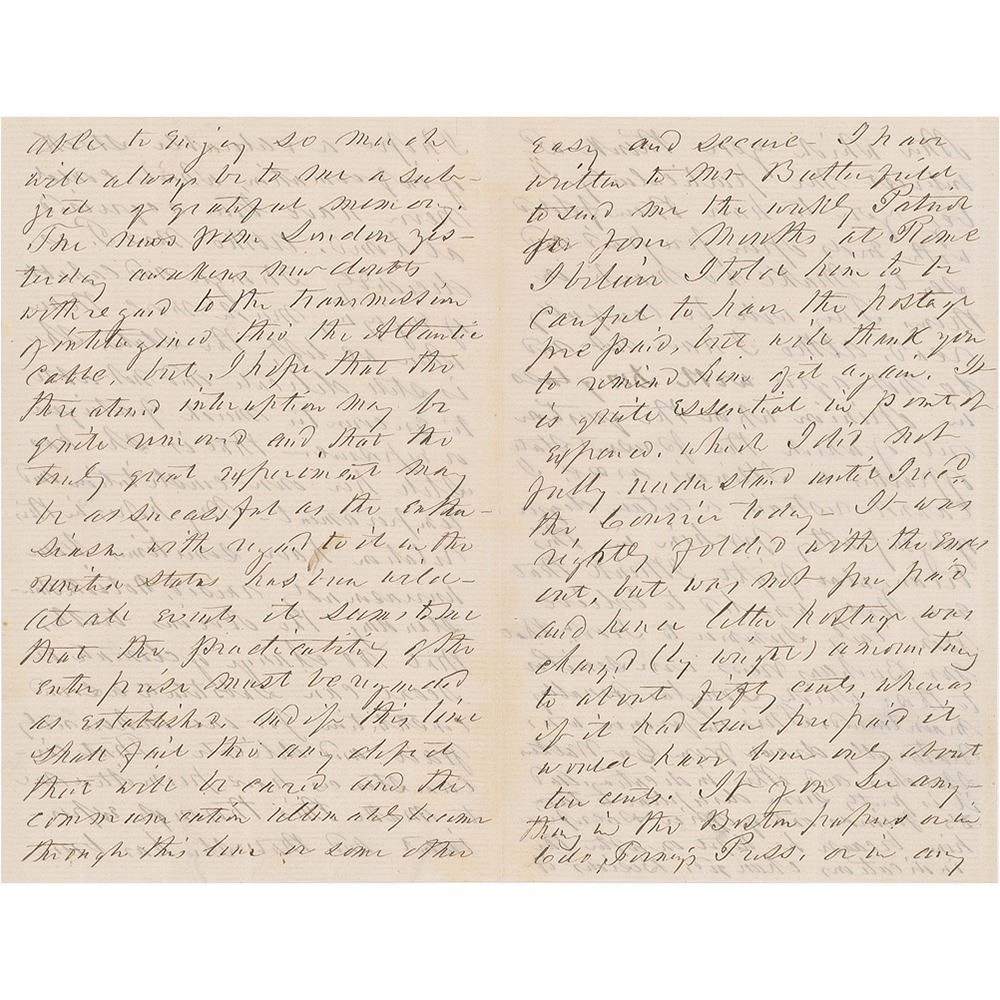 able to enjoy so much
will always be to me a sub-
ject of grateful memory.
The news from London yes-
terday awakens new doubts
with regard to the transmission
of intelligence thro the Atlantic
Cable, but I hope that the
threatened interruption may be
quite removed and that the
truly great experiment may
be as successful as the enthu-
siasm with regard to it in the
United States has been wild-
At all events it seems to me
that the practicability of the
enterprise must be regarded
as established. And if this line
shall fail thro any defect
that will be cured and the
communication ultimately become
through this line or some other
easy and secure- I have
written to Mr Butterfield
to send me the weekly Patriot
for four months at Rome
I believe I told him to be
careful to have the postage
pre paid, but will thank you
to remind him of it again. It
is quite essential in point of
expence, which I did not
fully understand until I recd
the Courier today- It was
rightly folded with the ends
out, but was not pre paid
and hence letter postage was
charged (by weight) amounting
to about fifty cents, whereas
if it had been pre paid it
would have been only about
ten cents. If you see any-
thing in the Boston papers or in
Col. Forney's Press, or in any